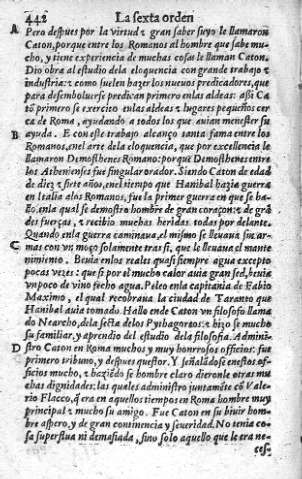 442 La sexta orden
A Pero despues por la virtud ⁊ gran saber suyo le llamaron
Caton, porque entre los Romanos al hombre que sabe mu-
cho, y tiene experiencia de muchas cosas le llaman Caton.
Dio obra al estudio dela eloquencia con grande trabajo ⁊
industria: ⁊ como suelen hazer los nueuos predicadores, que
para desemboluerse predican primero enlas aldeas: assi Ca
tõ primero se exercito enlas aldeas ⁊ lugares pequeños cer
ca de Roma, ayudando a todos los que auian menester su
B ayuda. E con este trabajo alcanço tanta fama entre los
Romanos, enel arte dela eloquencia, que por excellencia le
llamaron Demosthenes Romano: porque Demosthenes entre
los Athenienses fue singular orador. Siendo Caton de edad
de diez ⁊ siete años, enel tiempo que Hanibal hazia guerra
en Italia alos Romanos, fue la primer guerra en que se ha-
llo, enla qual se demostro hombre de gran coraçon: ⁊ de grã
des fuerças, ⁊ recibio muchas heridas todas por delante.
Quando enla guerra caminaua, el mismo se lleuaua sus ar-
C mas con vn moço solamente tras si, que le lleuaua el mante
nimiento. Beuia enlos reales quasi siempre agua excepto
pocas vezes: que si por el mucho calor auia gran sed, beuia
vn poco de vino fecho agua. Peleo enla capitania de Fabio
Maximo, el qual recobraua la ciudad de Taranto que
Hanibal auia tomado. Hallo ende Caton vn filosofo llama
do Nearcho, dela secta delos Pythagoros: ⁊ hizo se mucho
su familiar, y aprendio del estudio dela filosofia. Admini-
D stro Caton en Roma muchos y muy honrrosos officios: fue
primero tribuno, y despues questor. Y señalãdose enestos of-
ficios mucho, ⁊ haziẽdo se hombre claro dieronle otras mu
chas dignidades: las quales administro juntamẽte cõ Vale-
rio Flacco, q̃ era en aquellos tiempos en Roma hombre muy
principal ⁊ mucho su amigo. Fue Caton en su biuir hom-
bre aspero, y de gran continencia y seueridad. No tenia co-
sa superflua ni demasiada, sino solo aquello que le era ne-
ces-